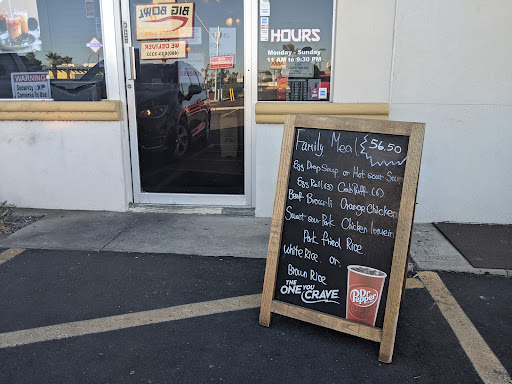 BIG BOWL
WE DELIVER
HOURS
Monday - Sunday
11 AM to 9:30 PM
WARNING
Security
Cameras In Use
Family Meal $56.50
Egg Drop Soup or Hot Sour Soup
Egg Roll (3) Crab Puff (3)
Beef Brocoli Orange Chicken
Sweet Sour Pork Chicken lomein
Pork fried Rice
White Rice or
Brown Rice
THE ONE YOU CRAVE
Dr Pepper